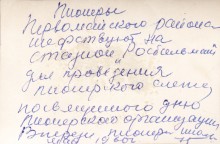 Пионеры
Первомайского района
шефствуют на
стадионе „Ростсельмаш"
для проведения
пионерского слета,
посвященного дню
Пионерской организации.
Впереди, пионеры школ